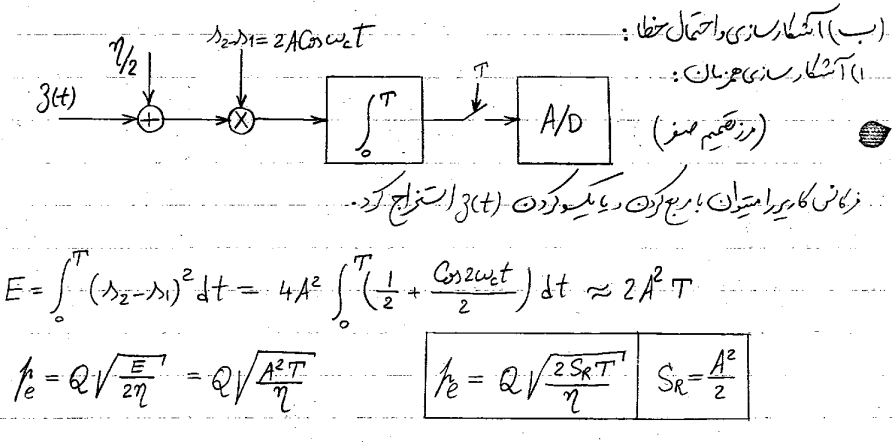 ب) آشکارسازی و احتمال خطا :
۱) آشکارسازی همزمان :
z(t) η/2 s₂-s₁ = 2A Cos ω_c t ∫₀ᵀ T A/D
(مرز تصمیم صفر)
فرکانس کاریر را میتوان با مربع کردن و یا یکسو کردن z(t) استخراج کرد.
E = ∫₀ᵀ (s₂-s₁)² dt = 4A² ∫₀ᵀ (1/2 + Cos 2ω_c t / 2) dt ≈ 2A² T
p_e = Q√(E/2η) = Q√(A²T/η)
p_e = Q√(2S_R T/η) S_R = A²/2